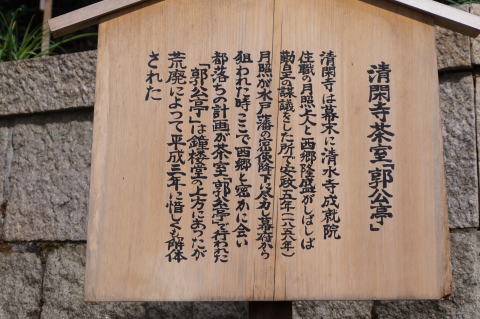 清閑寺茶室「郭公亭」
清閑寺は幕末に清水寺成就院
住職の月照上人と西郷隆盛がしばしば
勤皇の謀議をした所で安政五年(一八五八年)
月照が水戸藩の密使降下に参画し幕府から
狙われた時ここで西郷と密かに会い
都落ちの計画が茶室「郭公亭」で行われた
「郭公亭」は鐘楼堂の上方にあったが
荒廃によって平成三年に惜しくも解体
された